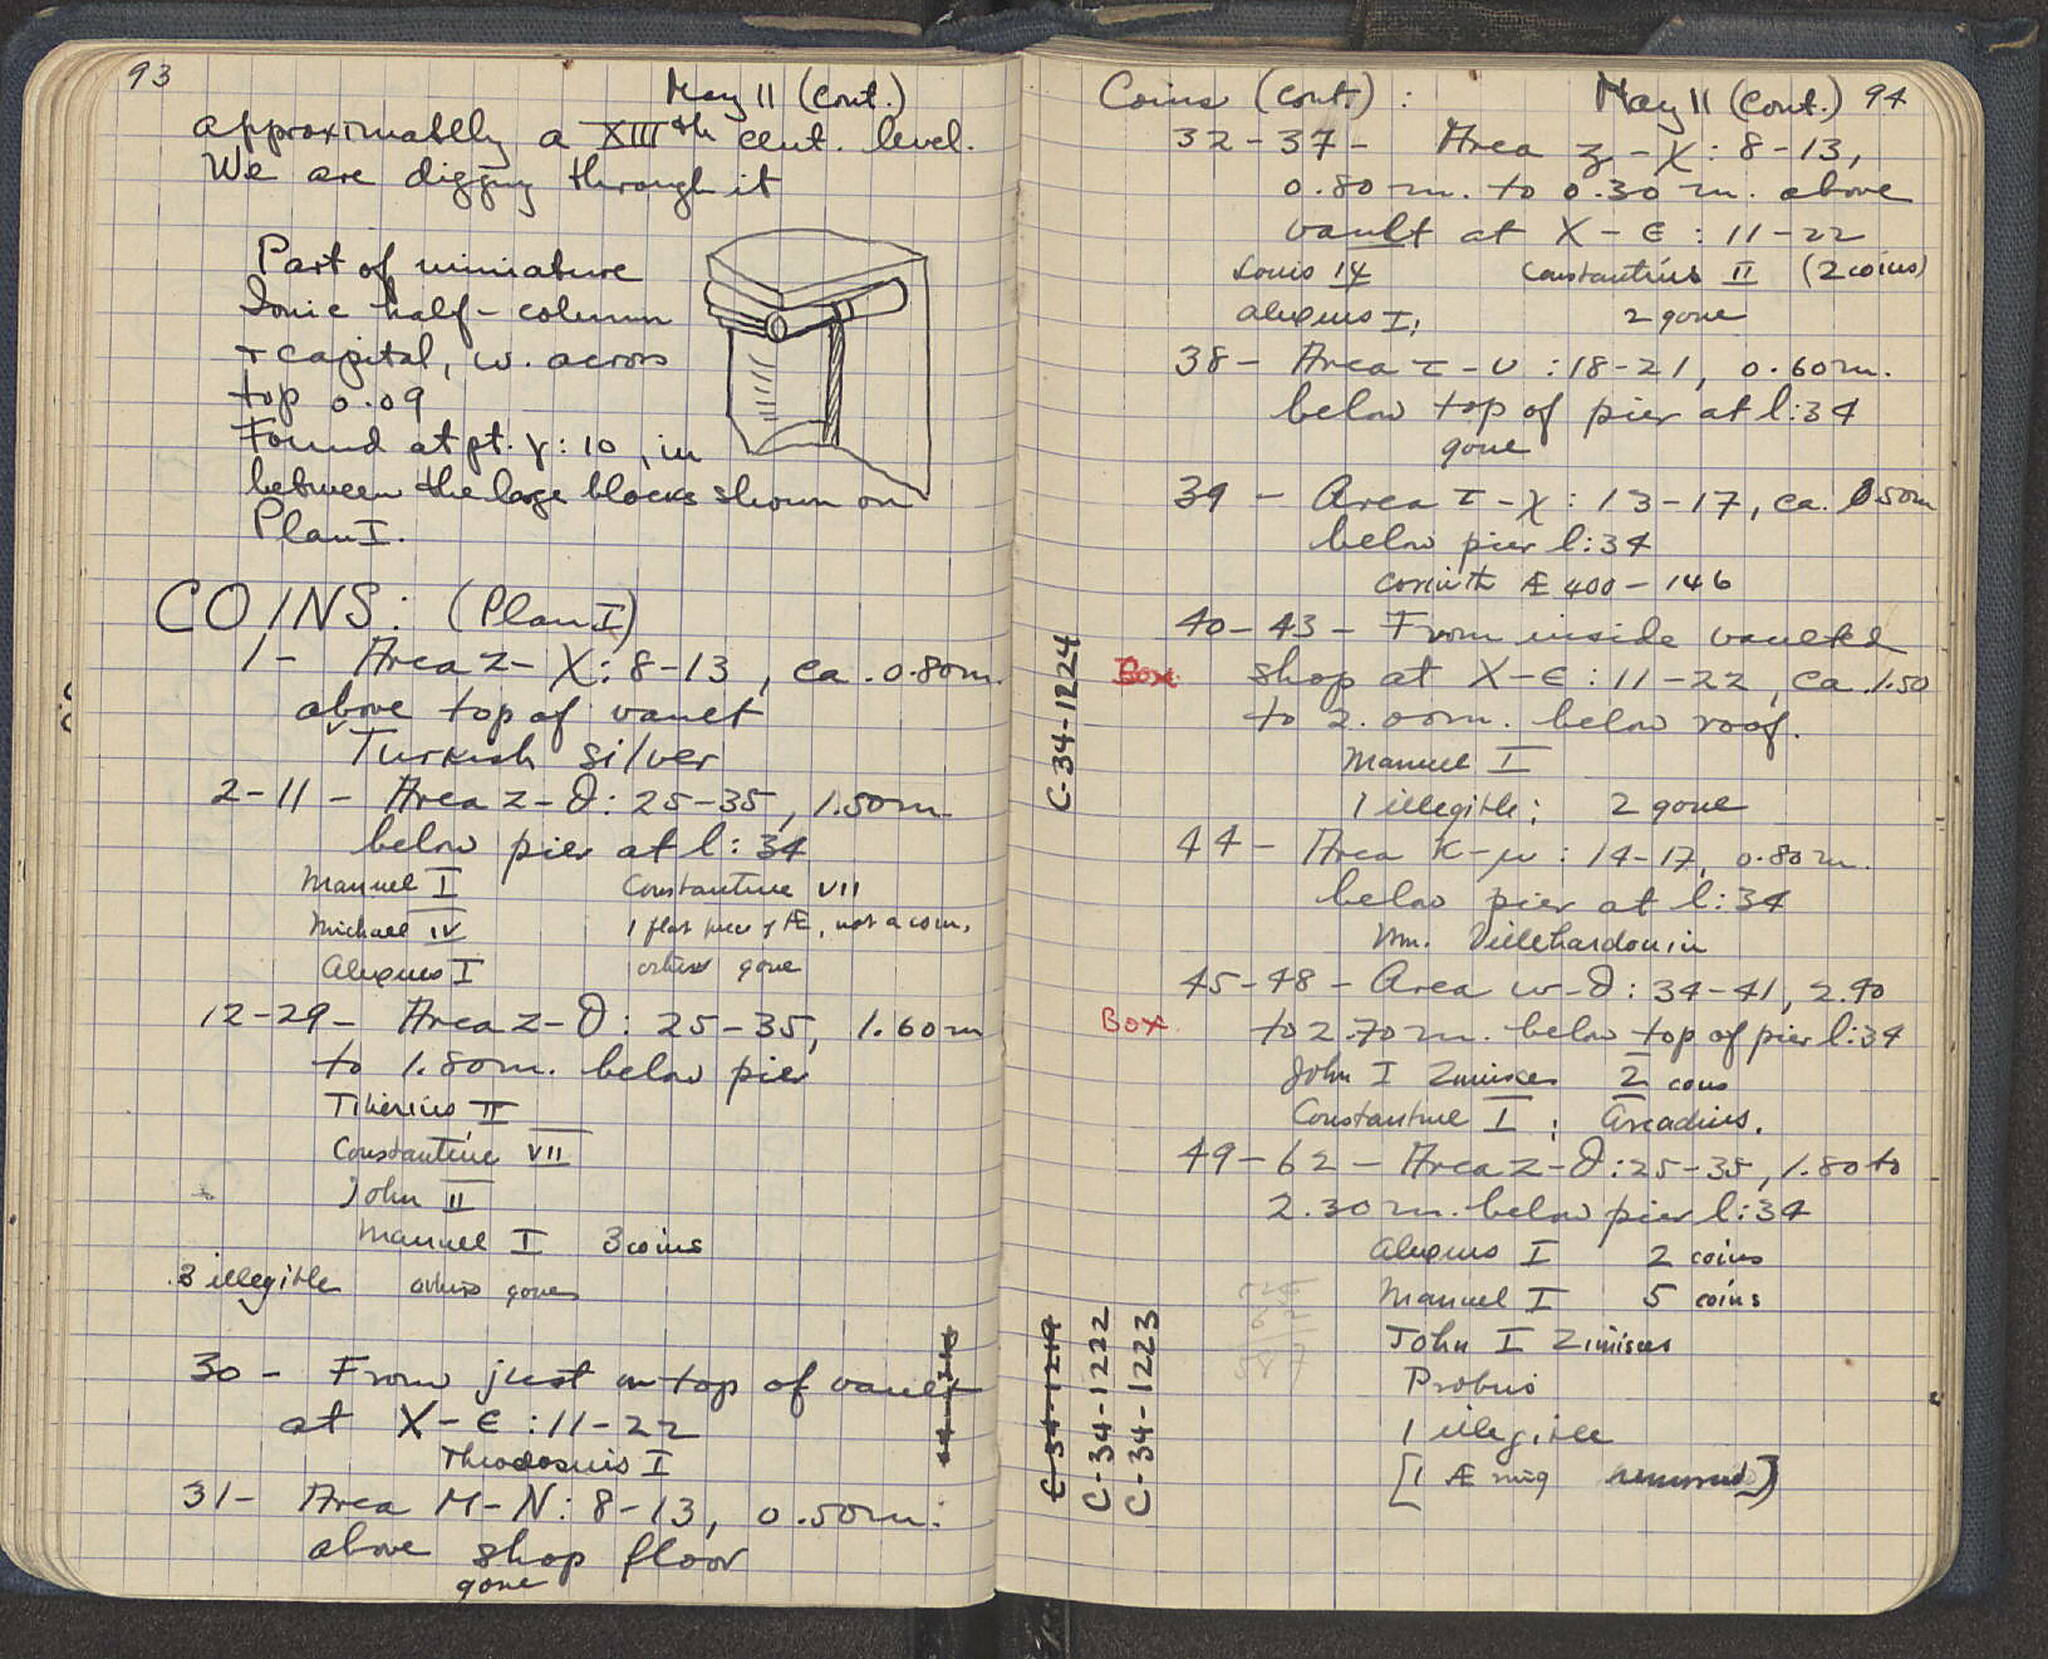 93
May 11 (cont.)
approximatelly a XIIIth cent. level.
We are digging through it
Part of miniature
Ionic half-column
+ capital, w. across
top 0.09
Found at pt. γ:10, in
between the large blocks shown on
Plan I.
COINS: (Plan I)
1- Area z-X: 8-13, ca. 0.80m.
above top of vault
Turkish silver
2-11- Area z-∂: 25-35, 1.50m
below pier at l:34
Manuel I Constantine VII
Michael IV 1 flat piece of Æ, not a coin.
Alexius I others gone
12-29- Area z-∂: 25-35, 1.60m
to 1.80m. below pier
Tiberius II
Constantine VII
John II
Manuel I 3 coins
3 illegible others gone
30- From just on top of vault
at X-E:11-22
Theodosius I
31- Area M-N: 8-13, 0.50m.
above shop floor
gone
Coins (cont.): May 11 (cont.) 94
32-37- Area z-X: 8-13,
0.80m. to 0.30m. above
vault at X-E: 11-22
Louis 14 Constantius II (2 coins)
Alexius I; 2 gone
38- Area τ-υ: 18-21, 0.60m.
below top of pier at l:34
gone
39- Area τ-χ: 13-17, ca. 0.50m
below pier l:34
Corinth Æ 400-146
40-43- From inside vaulted
Box shop at X-E: 11-22, ca. 1.50
to 2.00m. below roof.
Manuel I
1 illegible; 2 gone
44- Area K-μ: 14-17, 0.80m.
below pier at l:34
Wm. Villehardouin
45-48- Area w-∂: 34-41, 2.40
Box to 2.70m. below top of pier l:34
John I Zimisces 2 coins
Constantine I; Arcadius.
49-62- Area z-∂: 25-35, 1.80 to
2.30m. below pier l:34
Alexius I 2 coins
Manuel I 5 coins
John I Zimisces
Probus
1 illegible
[1 Æ ring removed]
C-34-1224
C-34-1219
C-34-1222
C-34-1223